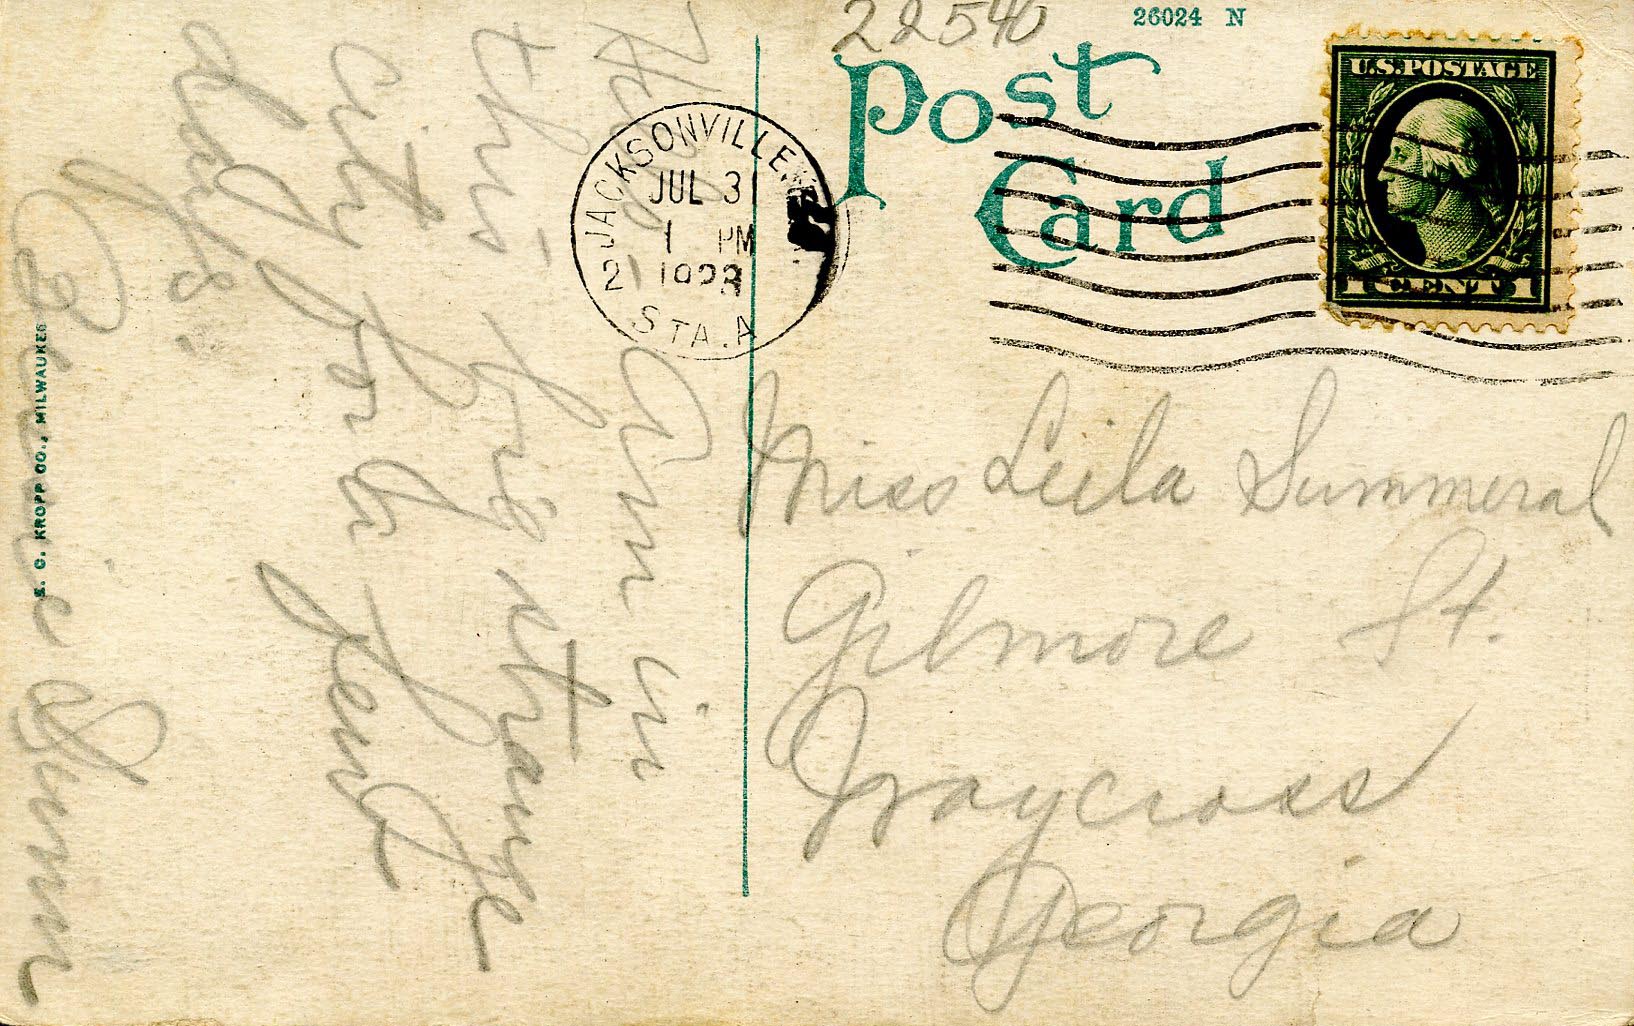 22540
26024 N
Post
Card
U.S. POSTAGE
1 CENTS 1
JACKSONVILLE
JUL 31
1 PM
2
STA. A
Miss Leila Summeral
Gilmore St.
Waycross
Georgia
Hello Am in
this big strange
city for a few
days.
Bessie Summ
E. C. KROPP CO., MILWAUKEE